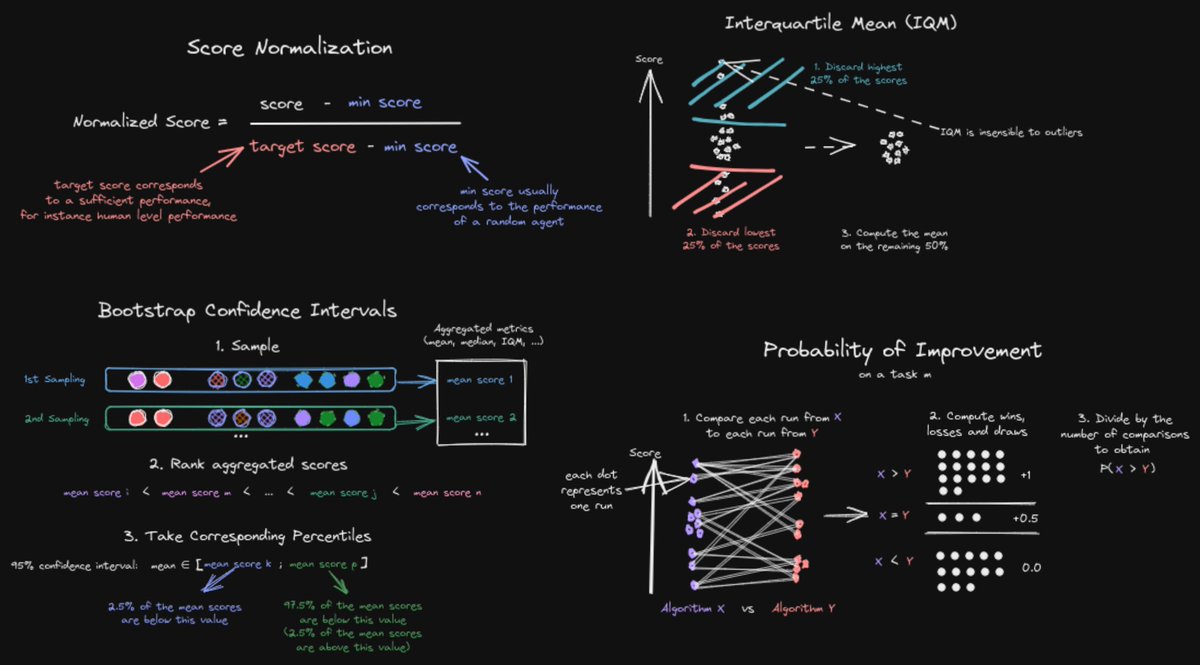 Score Normalization
Normalized Score =
score - min score
target score - min score
target score corresponds
to a sufficient performance,
for instance human level performance
min score usually
corresponds to the performance
of a random agent
Interquartile Mean (IQM)
Score
1. Discard highest
25% of the scores
IQM is insensible to outliers
2. Discard lowest
25% of the scores
3. Compute the mean
on the remaining 50%
Bootstrap Confidence Intervals
1. Sample
Aggregated metrics
(mean, median, IQM, ...)
1st Sampling
mean score 1
2nd Sampling
mean score 2
...
...
2. Rank aggregated scores
mean score i < mean score m < ... < mean score j < mean score n
3. Take Corresponding Percentiles
95% confidence interval: mean ∈ [mean score k ; mean score p]
2.5% of the mean scores
are below this value
97.5% of the mean scores
are below this value
(2.5% of the mean scores
are above this value)
Probability of Improvement
on a task m
1. Compare each run from X
to each run from Y
Score
each dot
represents
one run
Algorithm X vs Algorithm Y
2. Compute wins,
losses and draws
X > Y
+1
X = Y
+0.5
X < Y
0.0
3. Divide by the
number of comparisons
to obtain
P(X > Y)